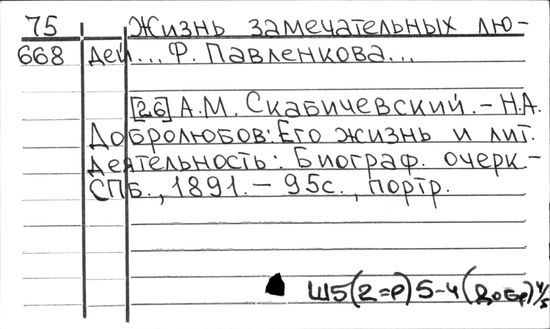 75 Жизнь замечательных лю-
668 дей... Ф. Павленкова...
[26] А.М. Скабичевский. – Н.А.
Добролюбов: Его жизнь и лит.
деятельность: Биограф. очерк. –
СПБ., 1891. – 95с., портр.
Ш5(2=Р)5-4(Добр) 4/5